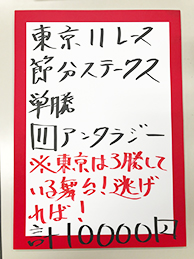 東京11レース
節分ステークス
単勝
⑪アンタラジー
※東京は3勝して
いる舞台!逃げ
れば!
計10000円